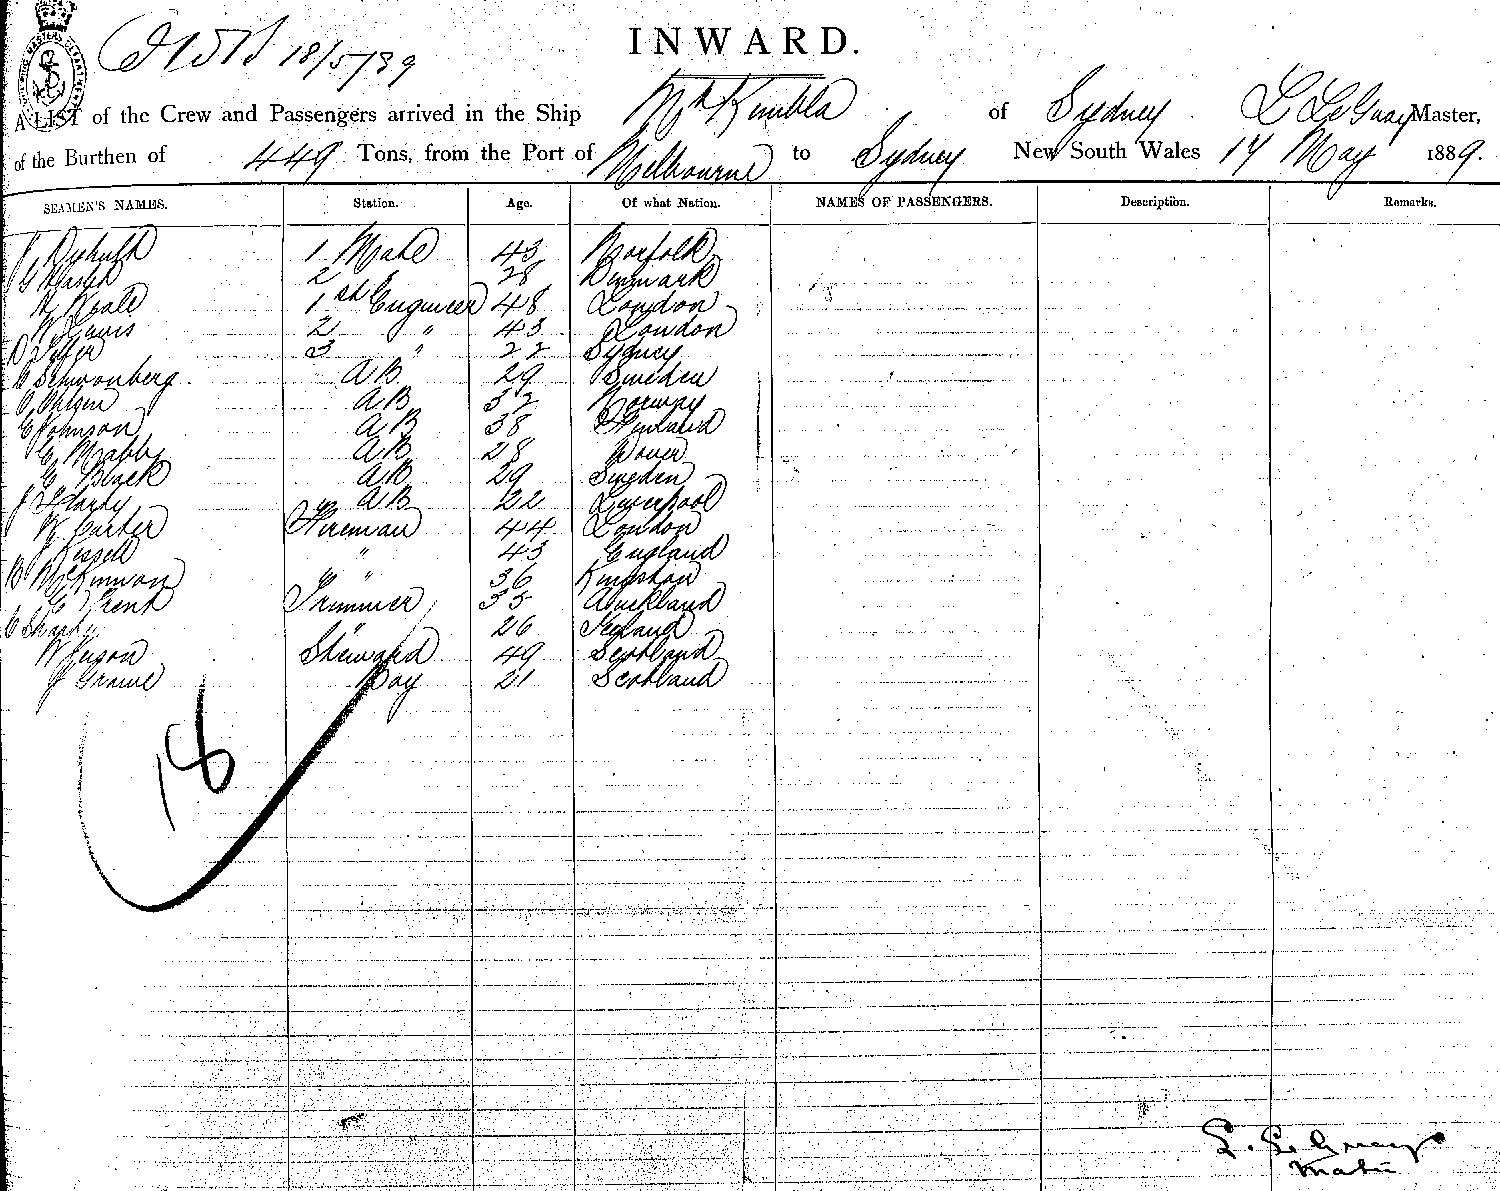 18/5/89
INWARD.
A LIST of the Crew and Passengers arrived in the Ship Kumbla of Sydney L LeGuay Master,
of the Burthen of 449 Tons, from the Port of Melbourne to Sydney New South Wales 17 May 1889.
SEAMEN'S NAMES. Station. Age. Of what Nation. NAMES OF PASSENGERS. Description. Remarks.
1 Mate 43 Norfolk
2 " 28 Denmark
1st Engineer 48 London
W 2 " 43 London
3 " 22 Sydney
Schwonberg AB 29 Sweden
AB 32 Norway
C Johnson AB 38 Finland
C Mabby AB 28 Dover
C Black AB 29 Sweden
J Hardy AB 22 Liverpool
W Carter Fireman 44 London
J " 43 England
McKinnon " 36 Kingston
C Trimmer 35 Auckland
C Sharp " 26 Ireland
W Steward 49 Scotland
J Boy 21 Scotland
18
L. LeGuay